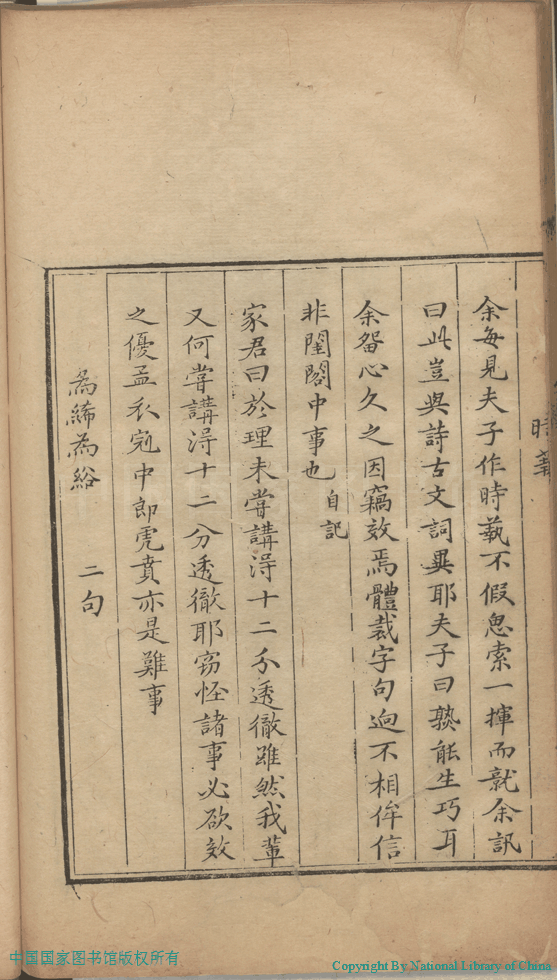 時蓺
余每見夫子作時蓺不假思索一揮而就余訊
曰此豈與詩古文詞異耶夫子曰熟能生巧耳
余畱心久之因竊效焉體裁字句逈不相侔信
非閨閣中事也 自記
家君曰於理未嘗講得十二分透徹雖然我輩
又何嘗講得十二分透徹耶窃怪諸事必欲效
之優孟衣冠中郎虎賁亦是難事
為絺為綌 二句
中国国家图书馆版权所有
Copyright By National Library of China